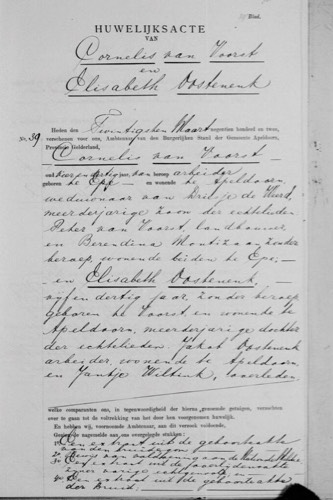 HUWELIJKSACTE
VAN
Cornelis van Voorst
en
Elisabeth Oostenenk
Heden den Twintigsten Maart negentien honderd en twee,
verschenen voor ons, Ambtenaar van den Burgerlijken Stand der Gemeente Apeldoorn,
Provincie Gelderland,
No. 39
Cornelis van Voorst
oud vier en dertig jaar, van beroep arbeider
geboren te Epe en wonende te Apeldoorn,
weduwnaar van de Weerd,
meerderjarige zoon der echtelieden
Peter van Voorst, landbouwer
en Berendina zonder
beroep, wonende beiden te Epe,
en Elisabeth Oostenenk,
vijf en dertig jaar, zonder beroep
geboren te Voorst en wonende te
Apeldoorn, meerderjarige dochter
der echtelieden Jakob Oostenenk
arbeider, wonende te Apeldoorn
en Jantje Wiltink, overleden
welke comparanten ons, in tegenwoordigheid der hierna genoemde getuigen, verzochten
over te gaan tot de voltrekking van het door hen voorgenomen huwelijk.
En hebben wij, voornoemde Ambtenaar, aan dit verzoek voldoende,
Gezien de nagezonden aan ons overgelegde stukken:
Een extract uit de geboorteakte
van den bruidegom
2o. Bewijs van voldoening aan de Nationale Militie
3o. Extract uit de
zijner vorige echtgenoote
4o. Een extract uit de geboorteakte
der Bruid.